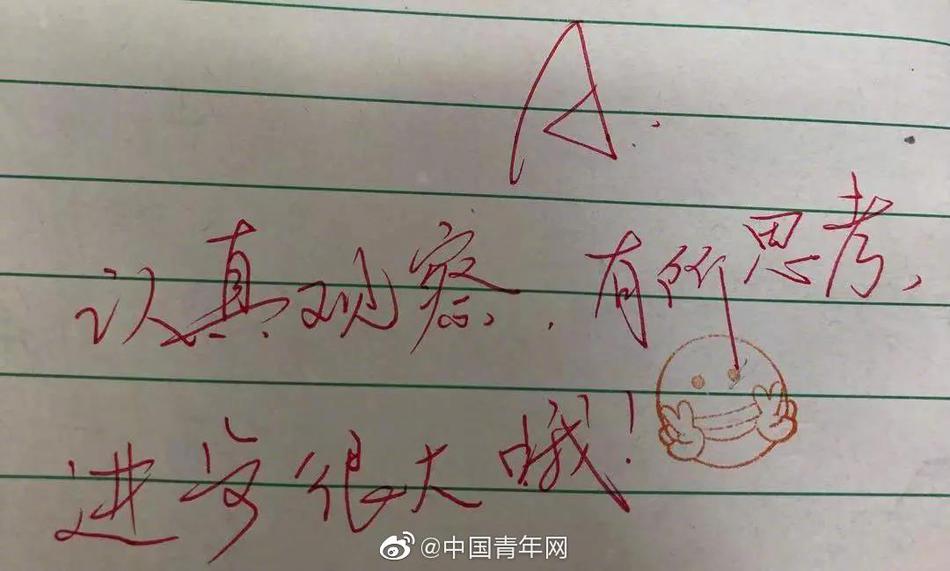 A.
认真观察，有所思考，
进步很大哦！
@中国青年网